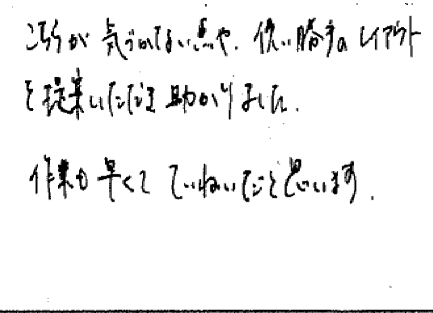 こちらが気づかない点や、使い勝手のレイアウト
を提案いただき助かりました。
作業も早くてていねいだと思います。